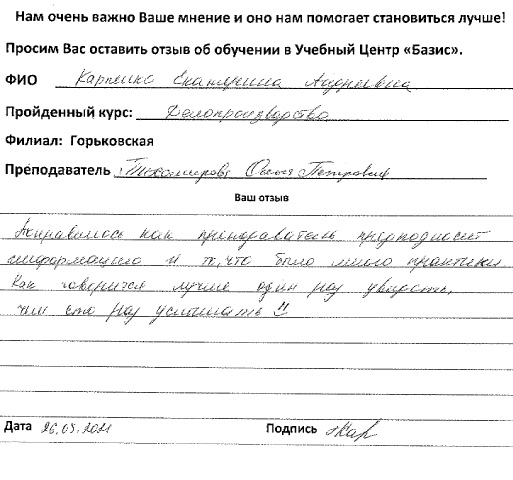 Нам очень важно Ваше мнение и оно нам помогает становиться лучше!
Просим Вас оставить отзыв об обучении в Учебный Центр «Базис».
ФИО Карпенко Екатерина Андреевна
Пройденный курс: Делопроизводство
Филиал: Горьковская
Преподаватель Тихомирова Ольга Петровна
Ваш отзыв
Понравилось как преподаватель преподносит
информацию и то, что было много практики
Как говорится лучше один раз увидеть,
чем сто раз услышать !!
Дата 26.05.2021
Подпись Кар